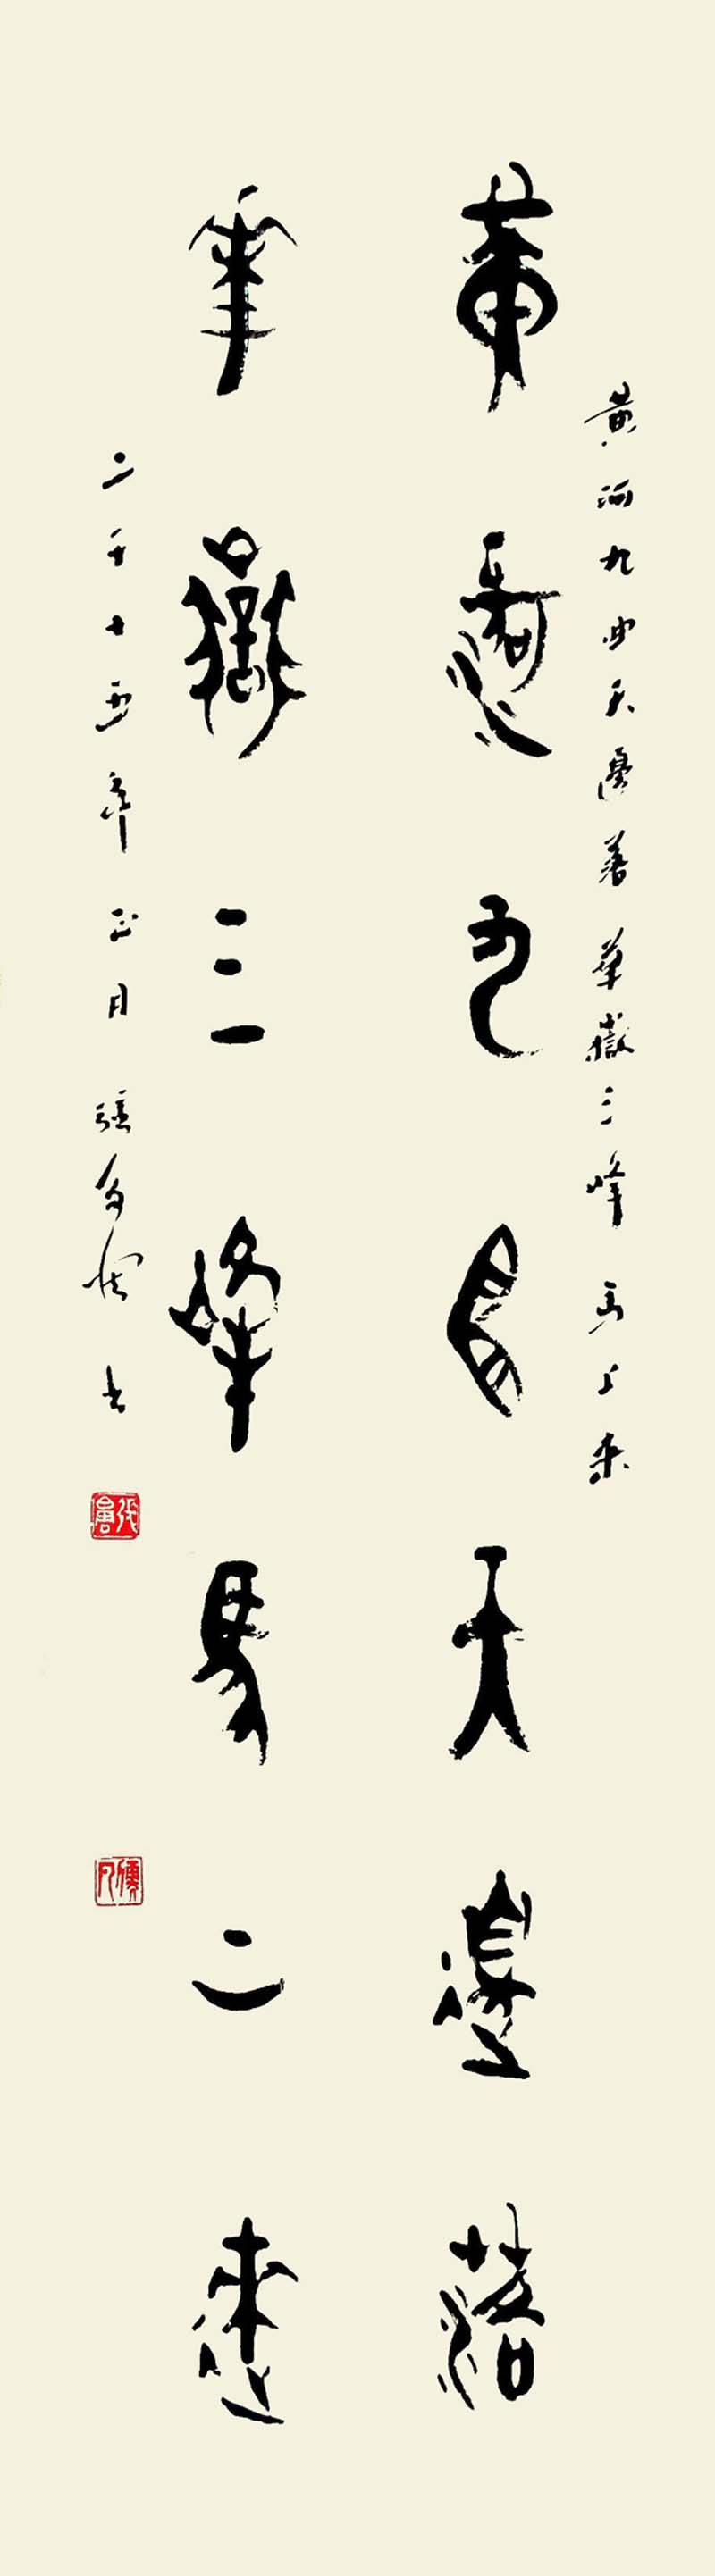 黄河九曲天邊落華嶽三峰馬上來
黄河九曲天邊落
華嶽三峰馬上來
二千十五年正月